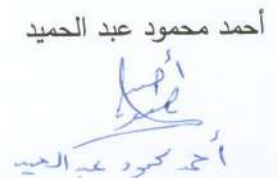 أحمد محمود عبد الحميد
أحمد محمود عبد الحميد